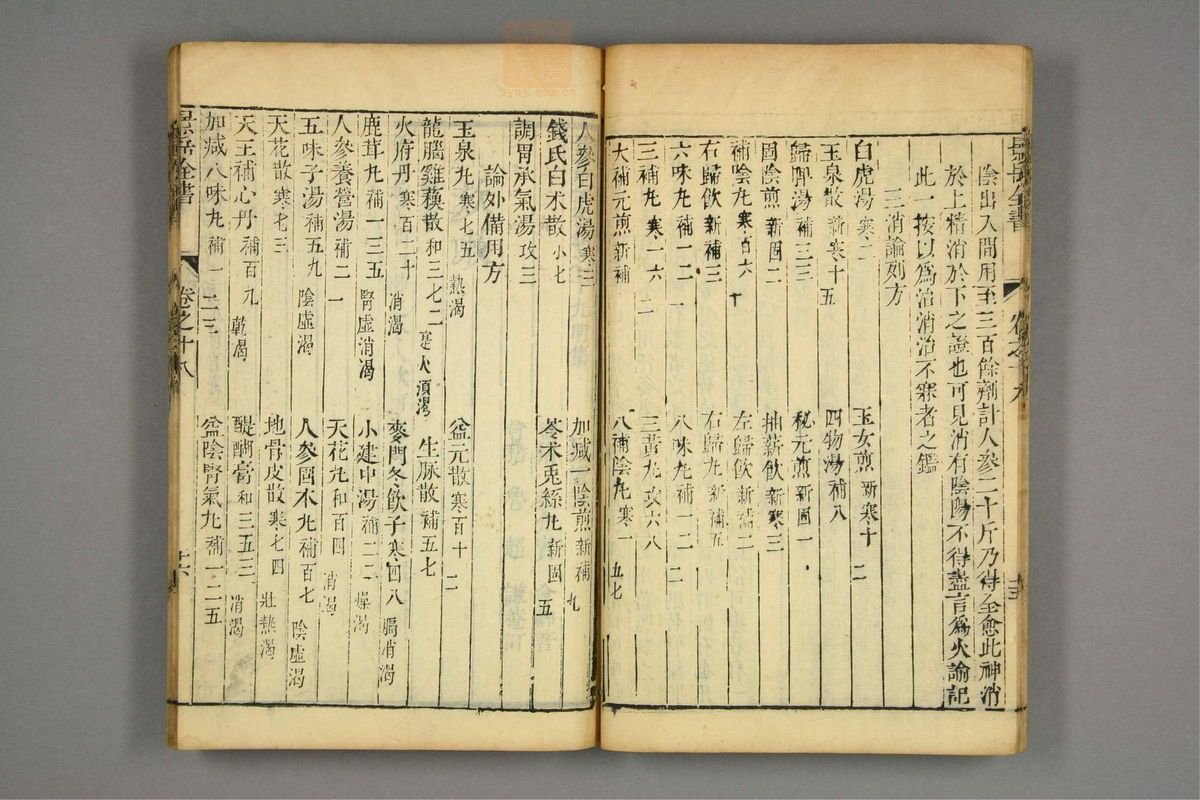 陰出入間用至三百餘劑計人參二十斤乃得全愈此神消
於上精消於下之證也可見消有陰陽不得盡言為火諭記
此一按以為治消治不寐者之鑑
三消論列方
白虎湯 寒二 玉女煎 新寒十二
玉泉散 新寒十五 四物湯 補八
歸脾湯 補三二 秘元煎 新固一
固陰煎 新固二 抽薪飲 新寒三
補陰丸 寒百六十 左歸飲 新補二
右歸飲 新補三 右歸丸 新補五
六味丸 補百二十 八味丸 補一二一
三補丸 寒百六二 三黃丸 攻六八
大補元煎 新補一 大補陰丸 寒一五七
景岳全書
卷之十八
十五
人參白虎湯 寒三 加減一陰煎 新補九
錢氏白术散 小七 苓术菟絲丸 新固五
調胃承氣湯 攻三
論外備用方
玉泉丸 寒七五 熱渴 益元散 寒百十二
龍腦雞蘇散 和三七二 生脉散 補五七
火府丹 寒百二十 消渴 麥門冬飲子 寒四八 膈消渴
鹿茸丸 補一三五 腎虛消渴 小建中湯 補二二 燥渴
人參養營湯 補二一 天花丸 和百四 消渴
五味子湯 補五九 陰虛渴 人參固本丸 補百七 陰虛渴
天花散 寒七三 地骨皮散 寒七四 壯熱渴
天王補心丹 補百九 乾渴 醍醐膏 和三五三 消渴
加減八味丸 補一二三 益陰腎氣丸 補一二五
景岳全書
卷之十八
十六